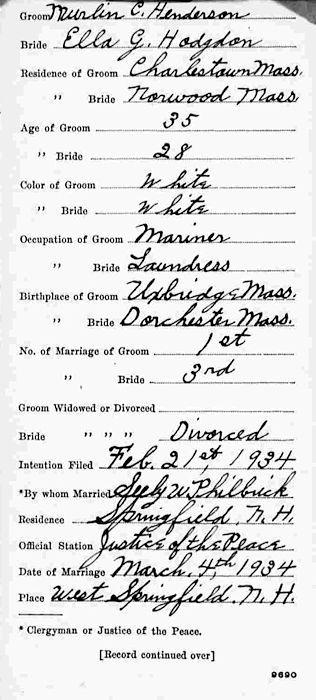 Groom Murlin C. Henderson
Bride Ella G. Hodgdon
Residence of Groom Charlestown Mass.
" Bride Norwood Mass
Age of Groom 35
" Bride 28
Color of Groom White
" Bride White
Occupation of Groom Mariner
" Bride Laundress
Birthplace of Groom Uxbridge Mass.
" Bride Dorchester Mass.
No. of Marriage of Groom 1st
" Bride 3rd
Groom Widowed or Divorced
Bride " " " Divorced
Intention Filed Feb. 21st, 1934
*By whom Married Seely W. Philbrick
Residence Springfield, N. H.
Official Station Justice of the Peace
Date of Marriage March, 4th, 1934
Place West Springfield. N. H.
* Clergyman or Justice of the Peace.
[Record continued over]
9690